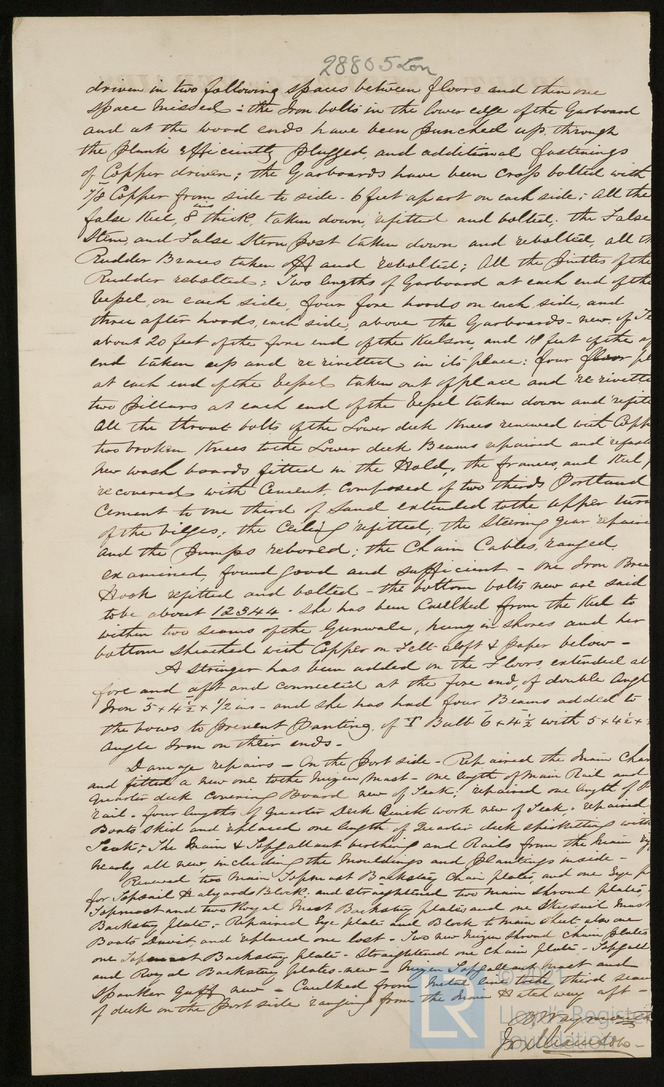 28805 Ton
driven in two following spaces between floors and then one
space missed - the Iron bolts in the lower edge of the Garboard
and at the wood ends have been punched up, through
the plank efficiently plugged, and additional fastenings
of Copper driven; the Garboards have been cross bolted with
7/8 Copper from side to side - 6 feet apart on each side; All the
false Keel, 8 ins thick, taken down, refitted and bolted; the False
Stem, and False Stern Post taken down and rebolted, all th
Rudder Braces taken off and rebolted; All the Pintles of the
Rudder rebolted; Two lengths of Garboard at each end of the
Vessel, on each side, four fore hoods on each side, and
three after hoods, each side, above the Garboards - new, of Te
about 20 feet of the fore end of the Keelson, and 18 feet of the a
end taken up and re rivetted in its place; four floor pl
at each end of the Vessel taken out of place and re rivette
two Pillars at each end of the Vessel taken down and refitt
All the throat bolts of the Lower deck Knees renewed with Copp
two broken Knees to the Lower deck Beams repaired and refast
new wash boards fitted in the Hold, the frames, and Keel
recovered with Cement, composed of two thirds Portland
Cement to one third of Sand extended to the upper turn
of the bilges; the Ceiling refitted, the Steering gear repaire
and the Pumps rebored; the Chain Cables, ranged,
examined, found good and sufficient - One Iron Brea
Hook refitted and bolted - the bottom bolts new are said
to be about 12344 - She has been Caulked from the Keel to
within two seams of the Gunwale, hung in shores and her
bottom sheathed with Copper on Felt aloft & paper below -
A Stringer has been added on the Floors extended al
fore and aft and connected at the fore end, of double Angl
Iron 5 x 4½ x 1/2 ins - and she has had four Beams added to
the bows to prevent Panting, of T Bulb 6 x 4½ with 5 x 4½ x
Angle Iron on their ends -
Damage repairs - On the Port side - Repaired the Main Chan
and fitted a new one to the Mizen Mast - One length of Main Rail and
quarter deck Covering Board new of Teak; repaired one length of
rail - four lengths of Quarter Deck Quick work new of Teak - repaired
Boats Skid and replaced one length of quarter deck spirketting with
Teak; The Main & Topgallant berthing and Rails from the Main
nearly all new including the Mouldings and plantings inside -
Renewed two Main Topmast Backstay Chain plates, and one Eye p
for Topsail Halyards Block, and straightened two main shroud plates,
Topmast and two Royal Mast Backstay plates and one Skysail Mast
Backstay plate; Repaired Eye plate and Block to Main Sheet also one
Boats Davit, and replaced one lost - Two new Mizen shroud chain plates
one Topmast Backstay plate - Straightened one Chain plate - Topgall
and Royal Backstay plates - new - Mizen Topgallant Mast and
Spanker Gaff new - Caulked from Metal line to the third seam
of deck on the Port side ranging from the Main Hatchway aft -
© 2021
LR
Lloyd's Register
Foundation